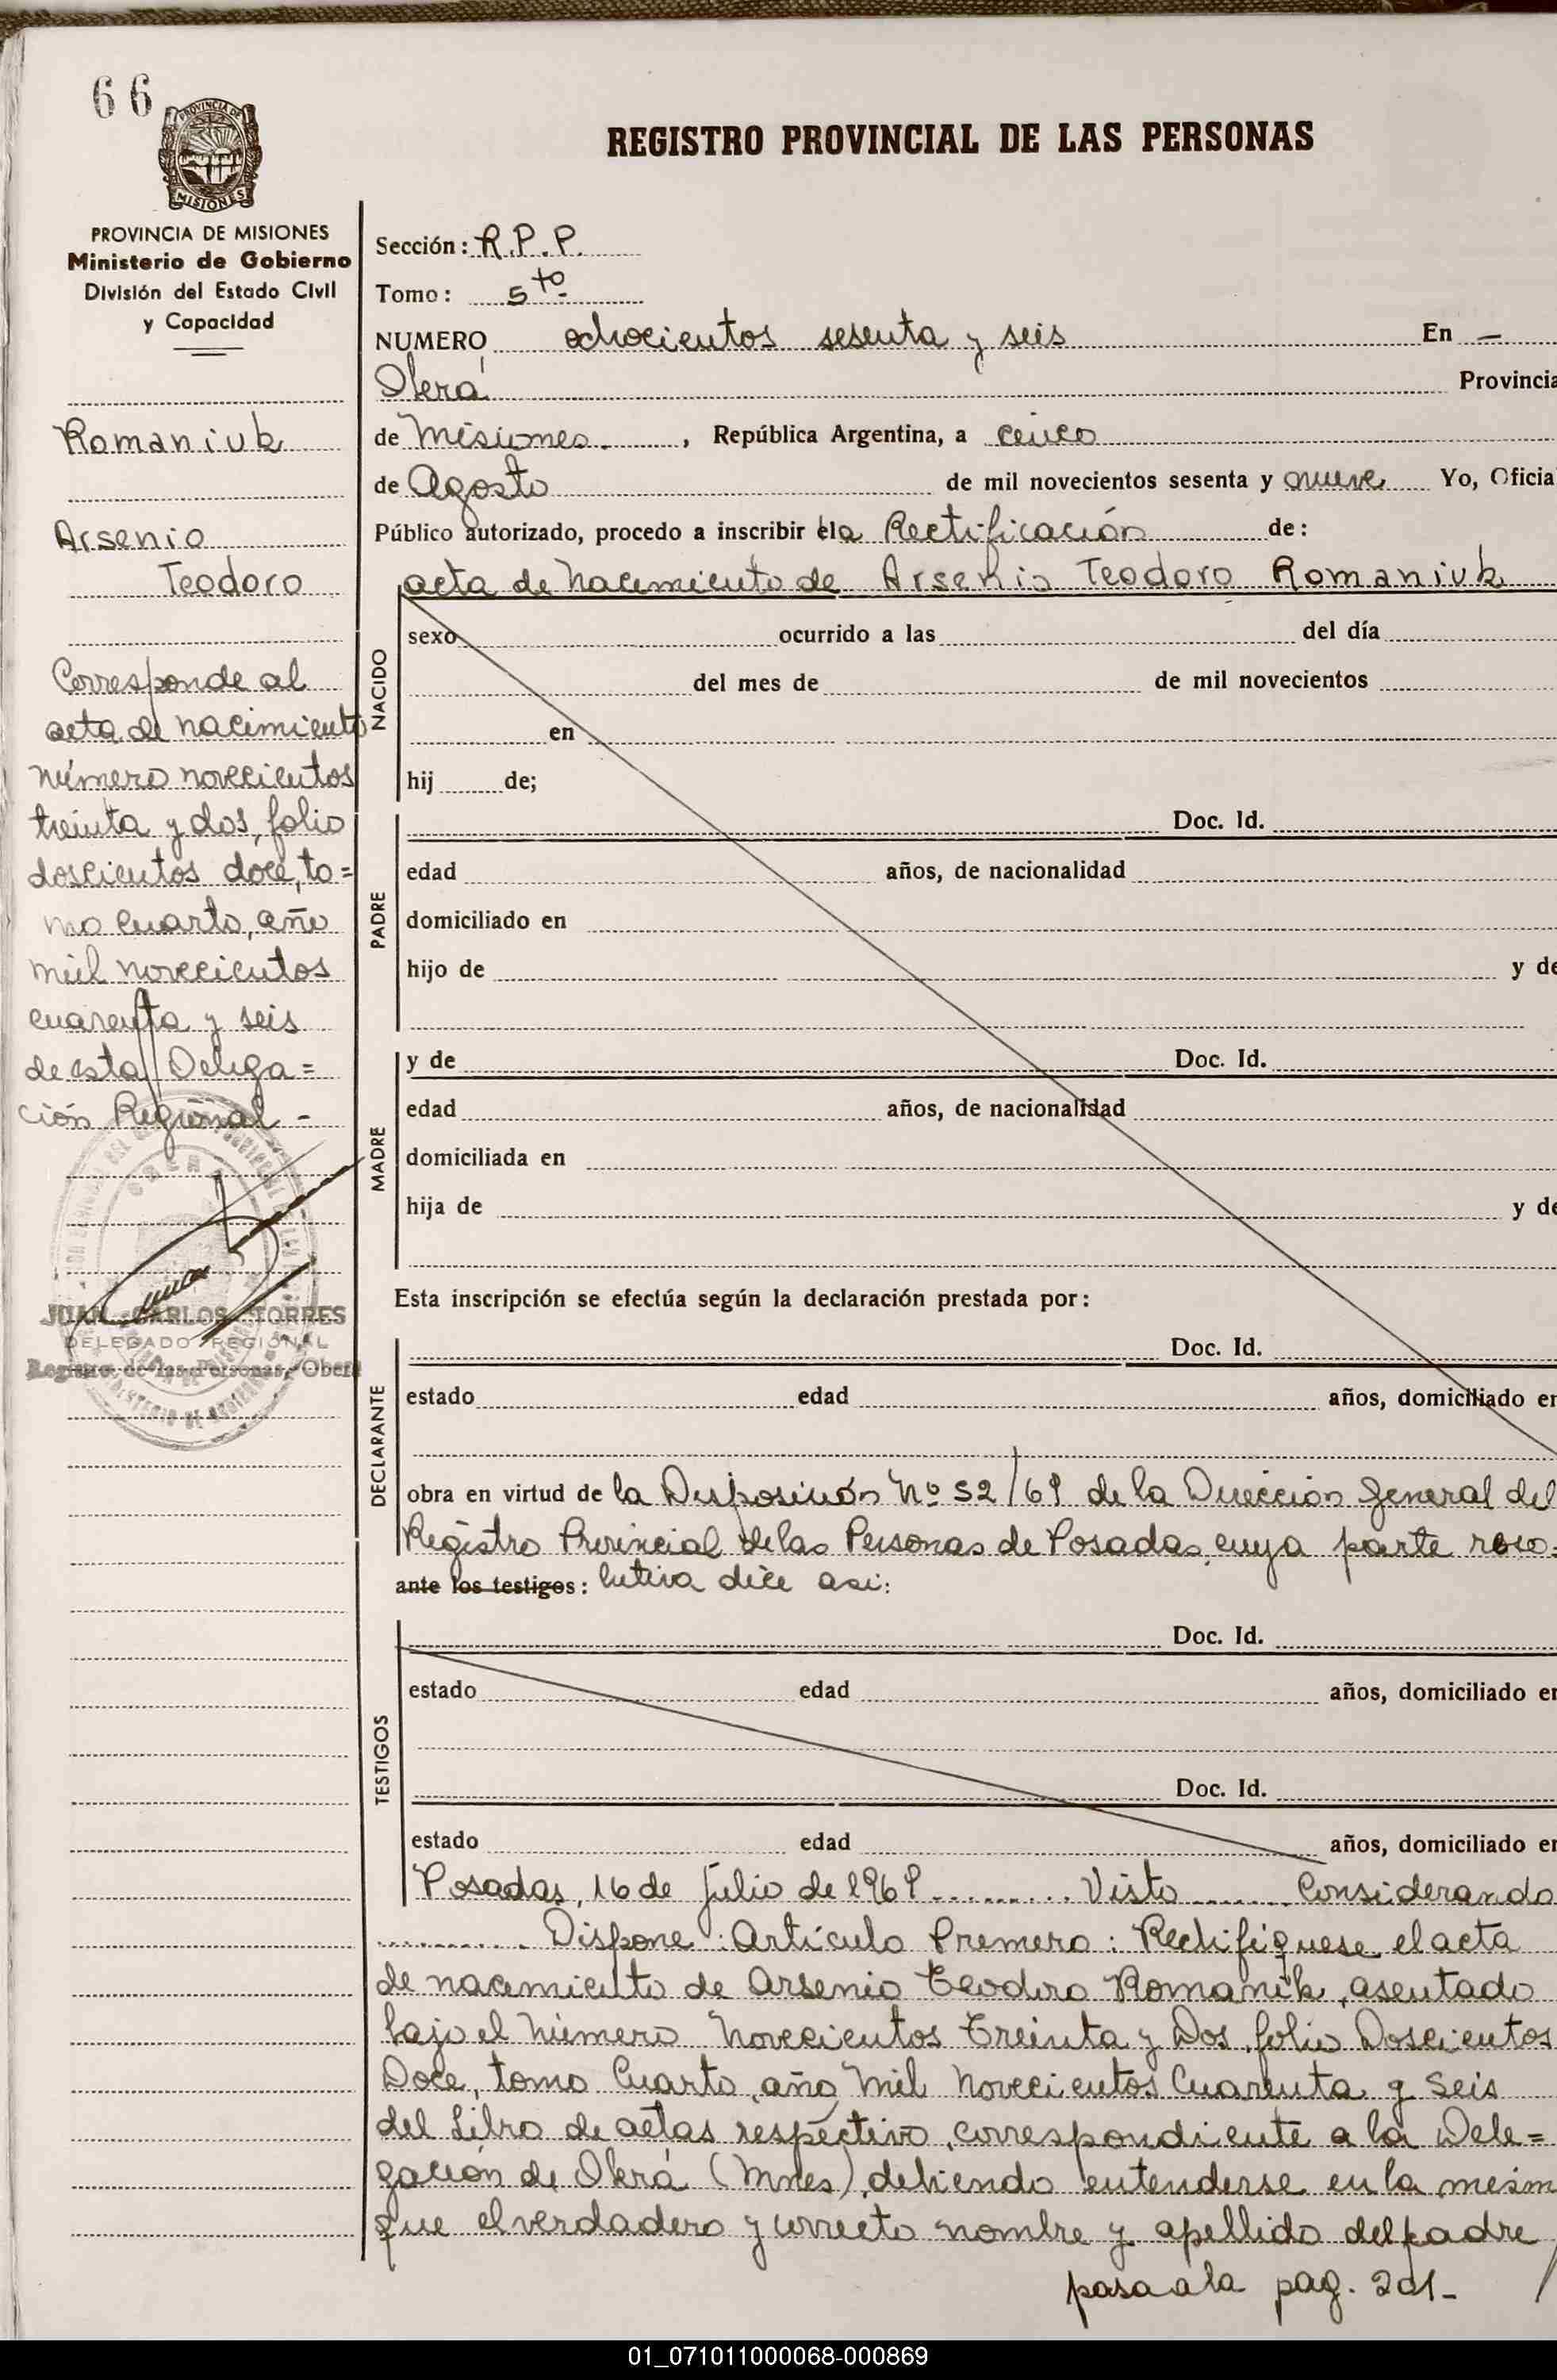 66
PROVINCIA DE
MISIONES
REGISTRO PROVINCIAL DE LAS PERSONAS
PROVINCIA DE MISIONES
Ministerio de Gobierno
División del Estado Civil
y Capacidad
Romaniuk
Arsenio
Teodoro
Corresponde al
acta de nacimiento
número novecientos
treinta y dos, folio
doscientos doce, to=
mo cuarto, año
mil novecientos
cuarenta y seis
de esta Delega=
ción Regional -
JUAN CARLOS TORRES
DELEGADO REGIONAL
Registro de las Personas, Oberá
Sección: R.P.P.
Tomo: 5to
NUMERO ochocientos sesenta y seis En -
Oberá Provincia
de Misiones. , República Argentina, a cinco
de Agosto de mil novecientos sesenta y nueve Yo, Oficia
Público autorizado, procedo a inscribir el la Rectificación de:
acta de nacimiento de Arsenio Teodoro Romaniuk
NACIDO
sexo ocurrido a las del día
del mes de de mil novecientos
en
hij de;
PADRE
Doc. Id.
edad años, de nacionalidad
domiciliado en
hijo de y de
MADRE
y de Doc. Id.
edad años, de nacionalidad
domiciliada en
hija de y de
Esta inscripción se efectúa según la declaración prestada por:
DECLARANTE
Doc. Id.
estado edad años, domiciliado en
obra en virtud de la Disposición Nº 52/69 de la Dirección General del
Registro Provincial de las Personas de Posadas, cuya parte reso=
ante los testigos: lutiva dice asi:
TESTIGOS
Doc. Id.
estado edad años, domiciliado en
Doc. Id.
estado edad años, domiciliado en
Posadas, 16 de Julio de 1969 .......... Visto ....... Considerando
............ Dispone: Artículo Primero: Rectifíquese el acta
de nacimiento de Arsenio Teodoro Romanik, asentado
bajo el Número Novecientos Treinta y Dos, folio Doscientos
Doce, tomo Cuarto, año Mil Novecientos Cuarenta y Seis
del Libro de actas respectivo, correspondiente a la Dele=
gación de Oberá (Mnes), debiendo entenderse en la mism
que el verdadero y correcto nombre y apellido del padre
pasa a la pag. 201-
01_071011000068-000869